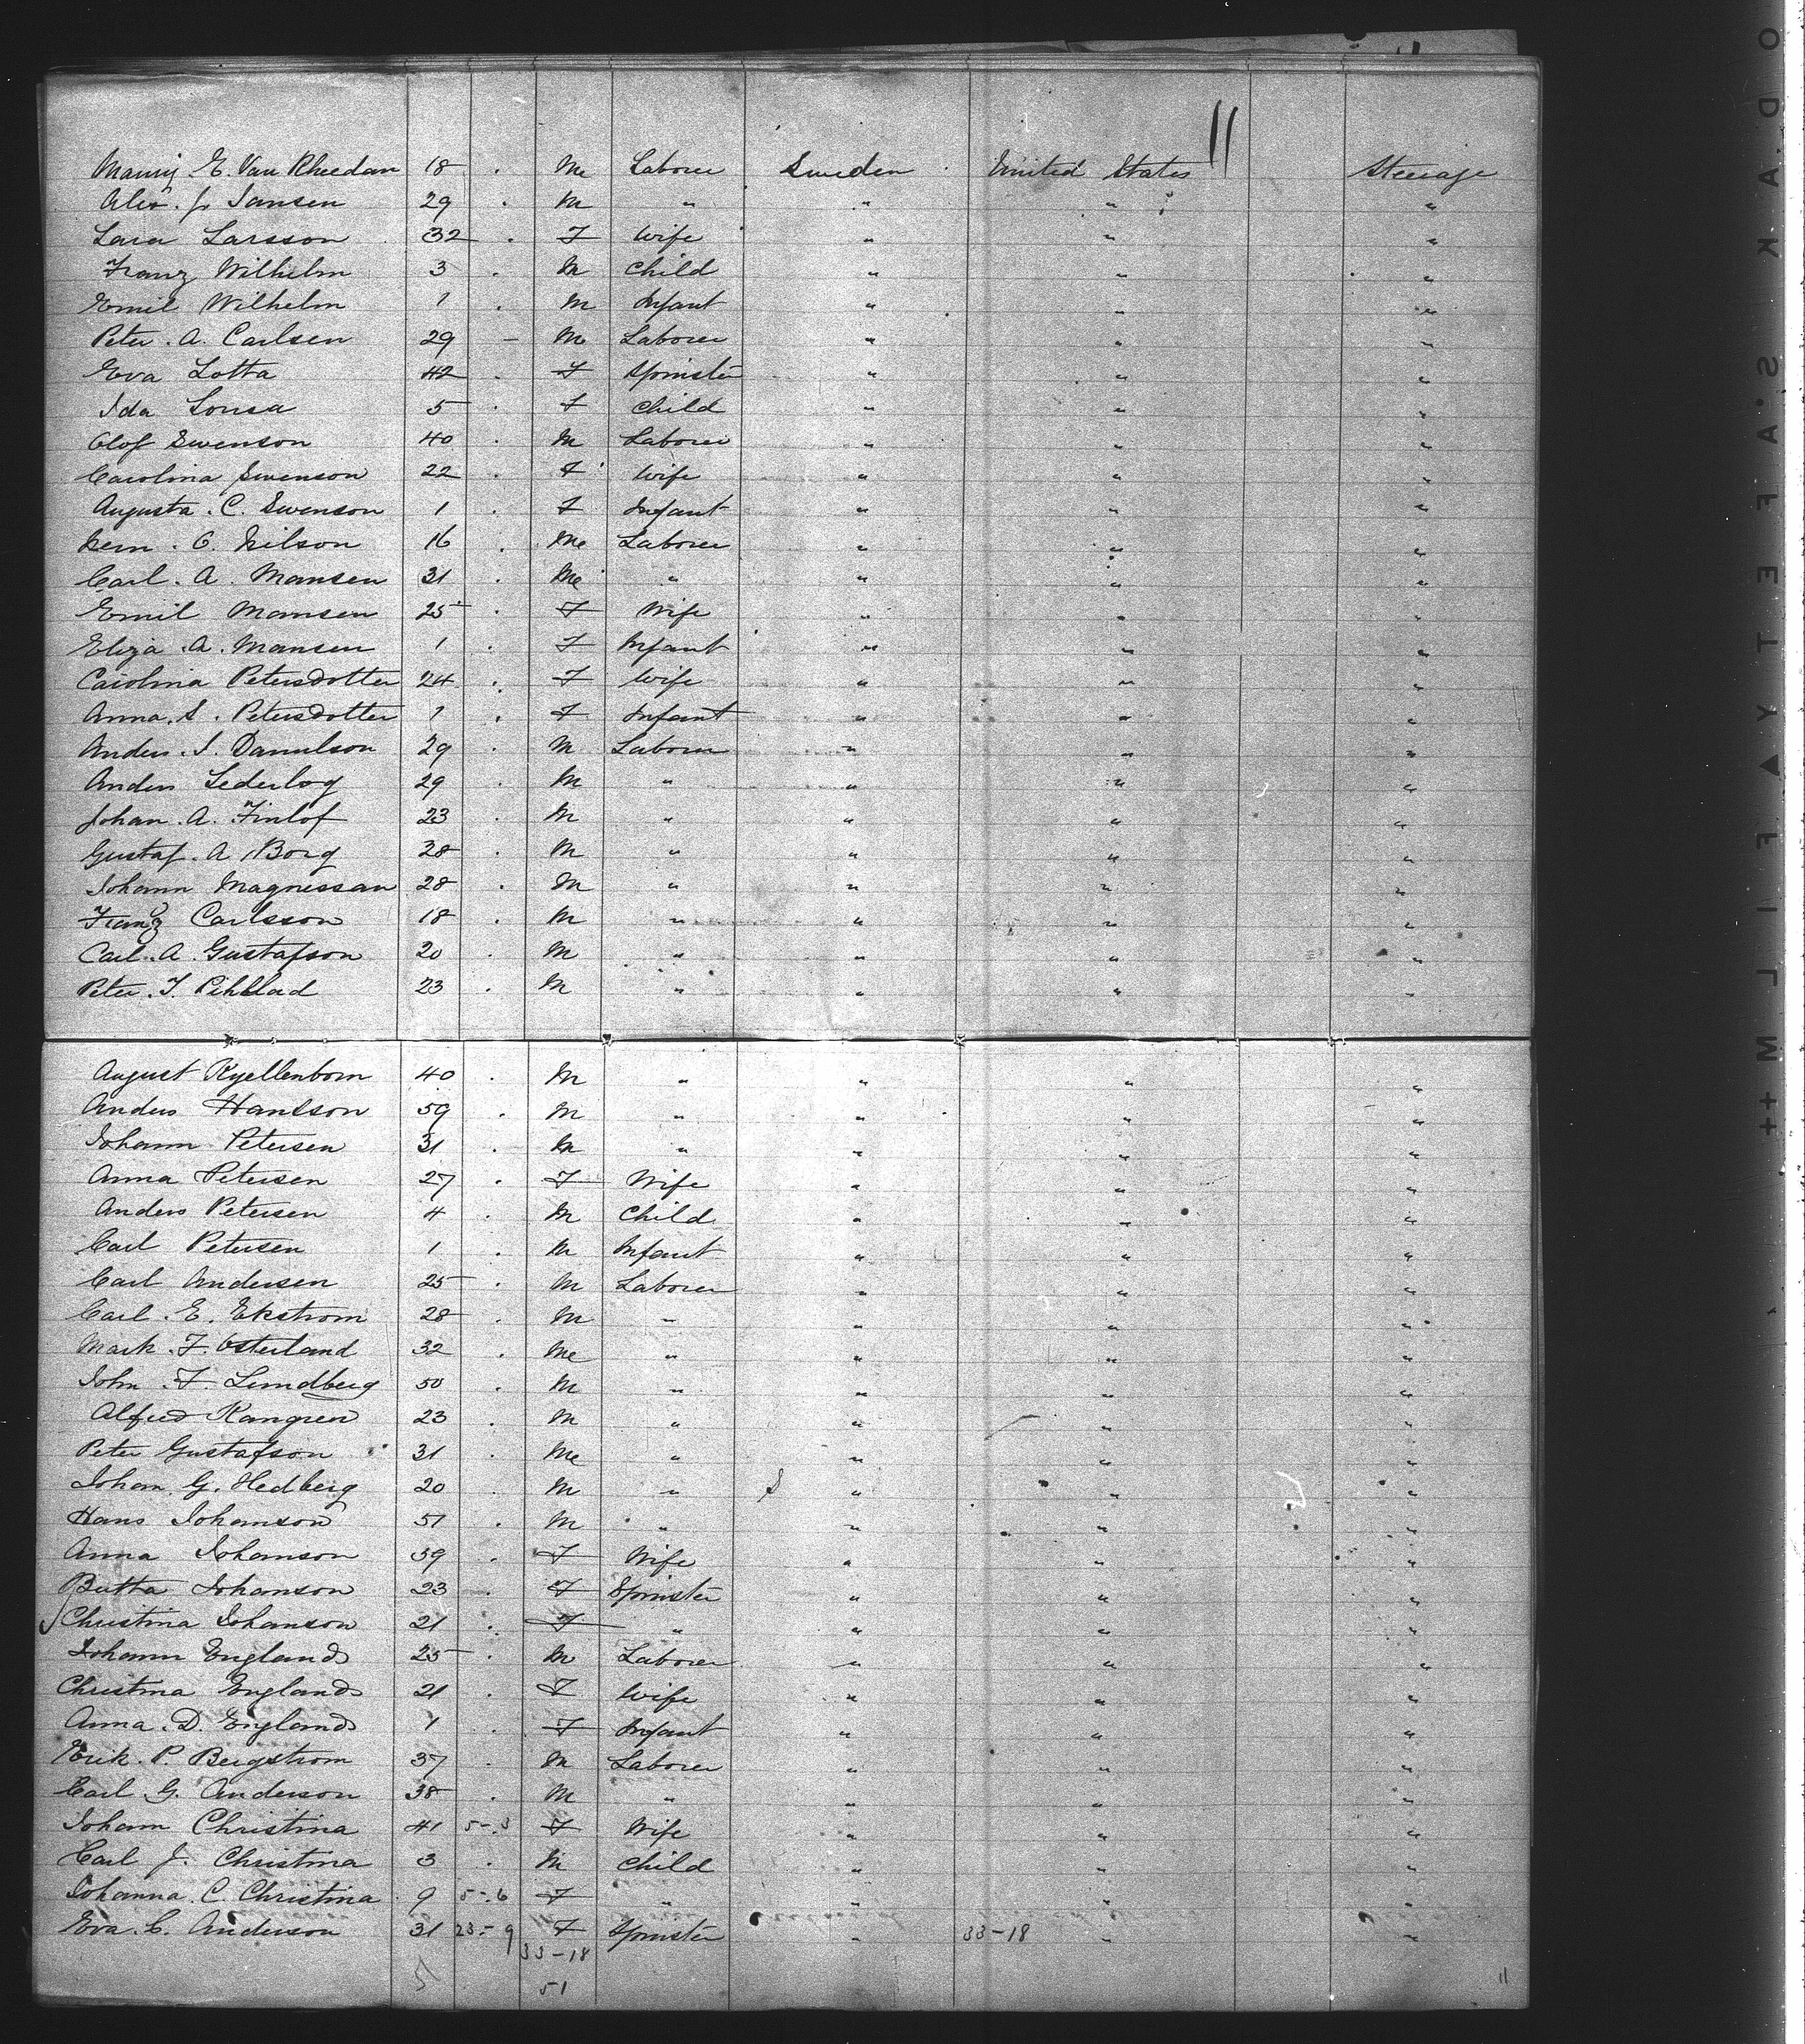 11
E. Van Rheedan 18 . M Laborer Sweden United States Steerage
Alex. J. Jansen 29 . M " " " "
Lara Larsson 32 . F Wife " " "
Franz Wilhelm 3 . M Child " " "
Emil Wilhelm 1 . M Infant " " "
Peter . A. Carlsen 29 - M Laborer " " "
Eva Lotta 42 . F Spinster " " "
Ida Lousa 5 . F Child " " "
Olof Swenson 40 . M Laborer " " "
Carolina Swenson 22 . F Wife " " "
Augusta . C. Swenson 1 . F Infant " " "
O. Nilson 16 . M Laborer " " "
Carl . A. Mansen 31 . M " " " "
Emil Mansen 25 . F Wife " " "
Eliza . A. Mansen 1 . F Infant " " "
Carolina Petersdotter 24 . F Wife " " "
Anna. S. Petersdotter 1 . F Infant " " "
Anders . J. Danulson 29 . M Laborer " " "
Anders 29 . M " " " "
Johan . A. Finlof 23 . M " " " "
Gustaf . A. Borg 28 . M " " " "
Johann Magnessan 28 . M " " " "
Franz Carlsson 18 . M " " " "
Carl . A. Gustafson 20 . M " " " "
Peter . J. Pihblad 23 . M " " " "
August Kyellenborn 40 . M " " " "
Anders Hanson 59 . M " " " "
Johann Petersen 31 . M " " " "
Anna Petersen 27 . F Wife " " "
Anders Petersen 4 . M Child " " "
Carl Petersen 1 . M Infant " " "
Carl Andersen 25 . M Laborer " " "
Carl . E. Ekstrom 28 . M " " " "
Mark . F. Osterland 32 . M " " " "
John . F. Lundberg 50 . M " " " "
Alfred Kangren 23 . M " " " "
Peter Gustafson 31 . M " " " "
Johan . G. Hedberg 20 . M " " " "
Hans Johanson 51 . M " " " "
Anna Johanson 39 . F Wife " " "
Butta Johanson 23 . F Spinster " " "
Christina Johanson 21 . F " " " "
Johann England 25 . M Laborer " " "
Christina England 21 . F Wife " " "
Anna . D. England 1 . F Infant " " "
Erik . P. Bergstrom 37 . M Laborer " " "
Carl . G. Anderson 38 . M " " " "
Johann Christina 41 5-3 F Wife " " "
Carl J. Christina 3 . M Child " " "
Johanna . C. Christina 9 5-6 F " " " "
Eva . C. Anderson 31 23-9 F Spinster " 33-18 " "
33-18
51
11